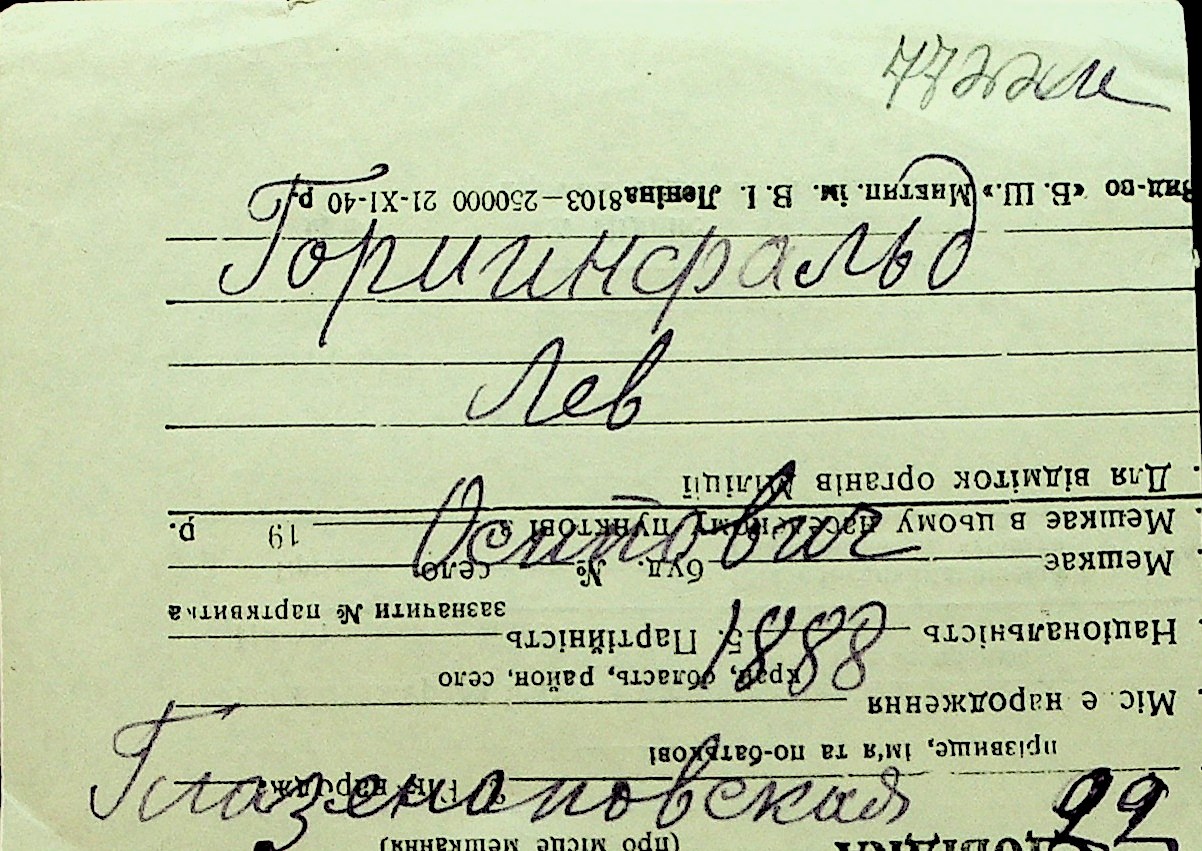 Лев
Осипович
1888
Глазенаповская 99
(про місце мешкання)
прізвище, ім'я та по-батькові
народження
край, область, район, село
Національність 5. Партійність
зазначити № партквитка
Мешкає буд. № село
Мешкає в цьому пунктові з 19 р.
Для відміток органів міліції
Вид-во «Б. Ш.» ім. В. І. Леніна 8103—250000 21-XI-40 р.